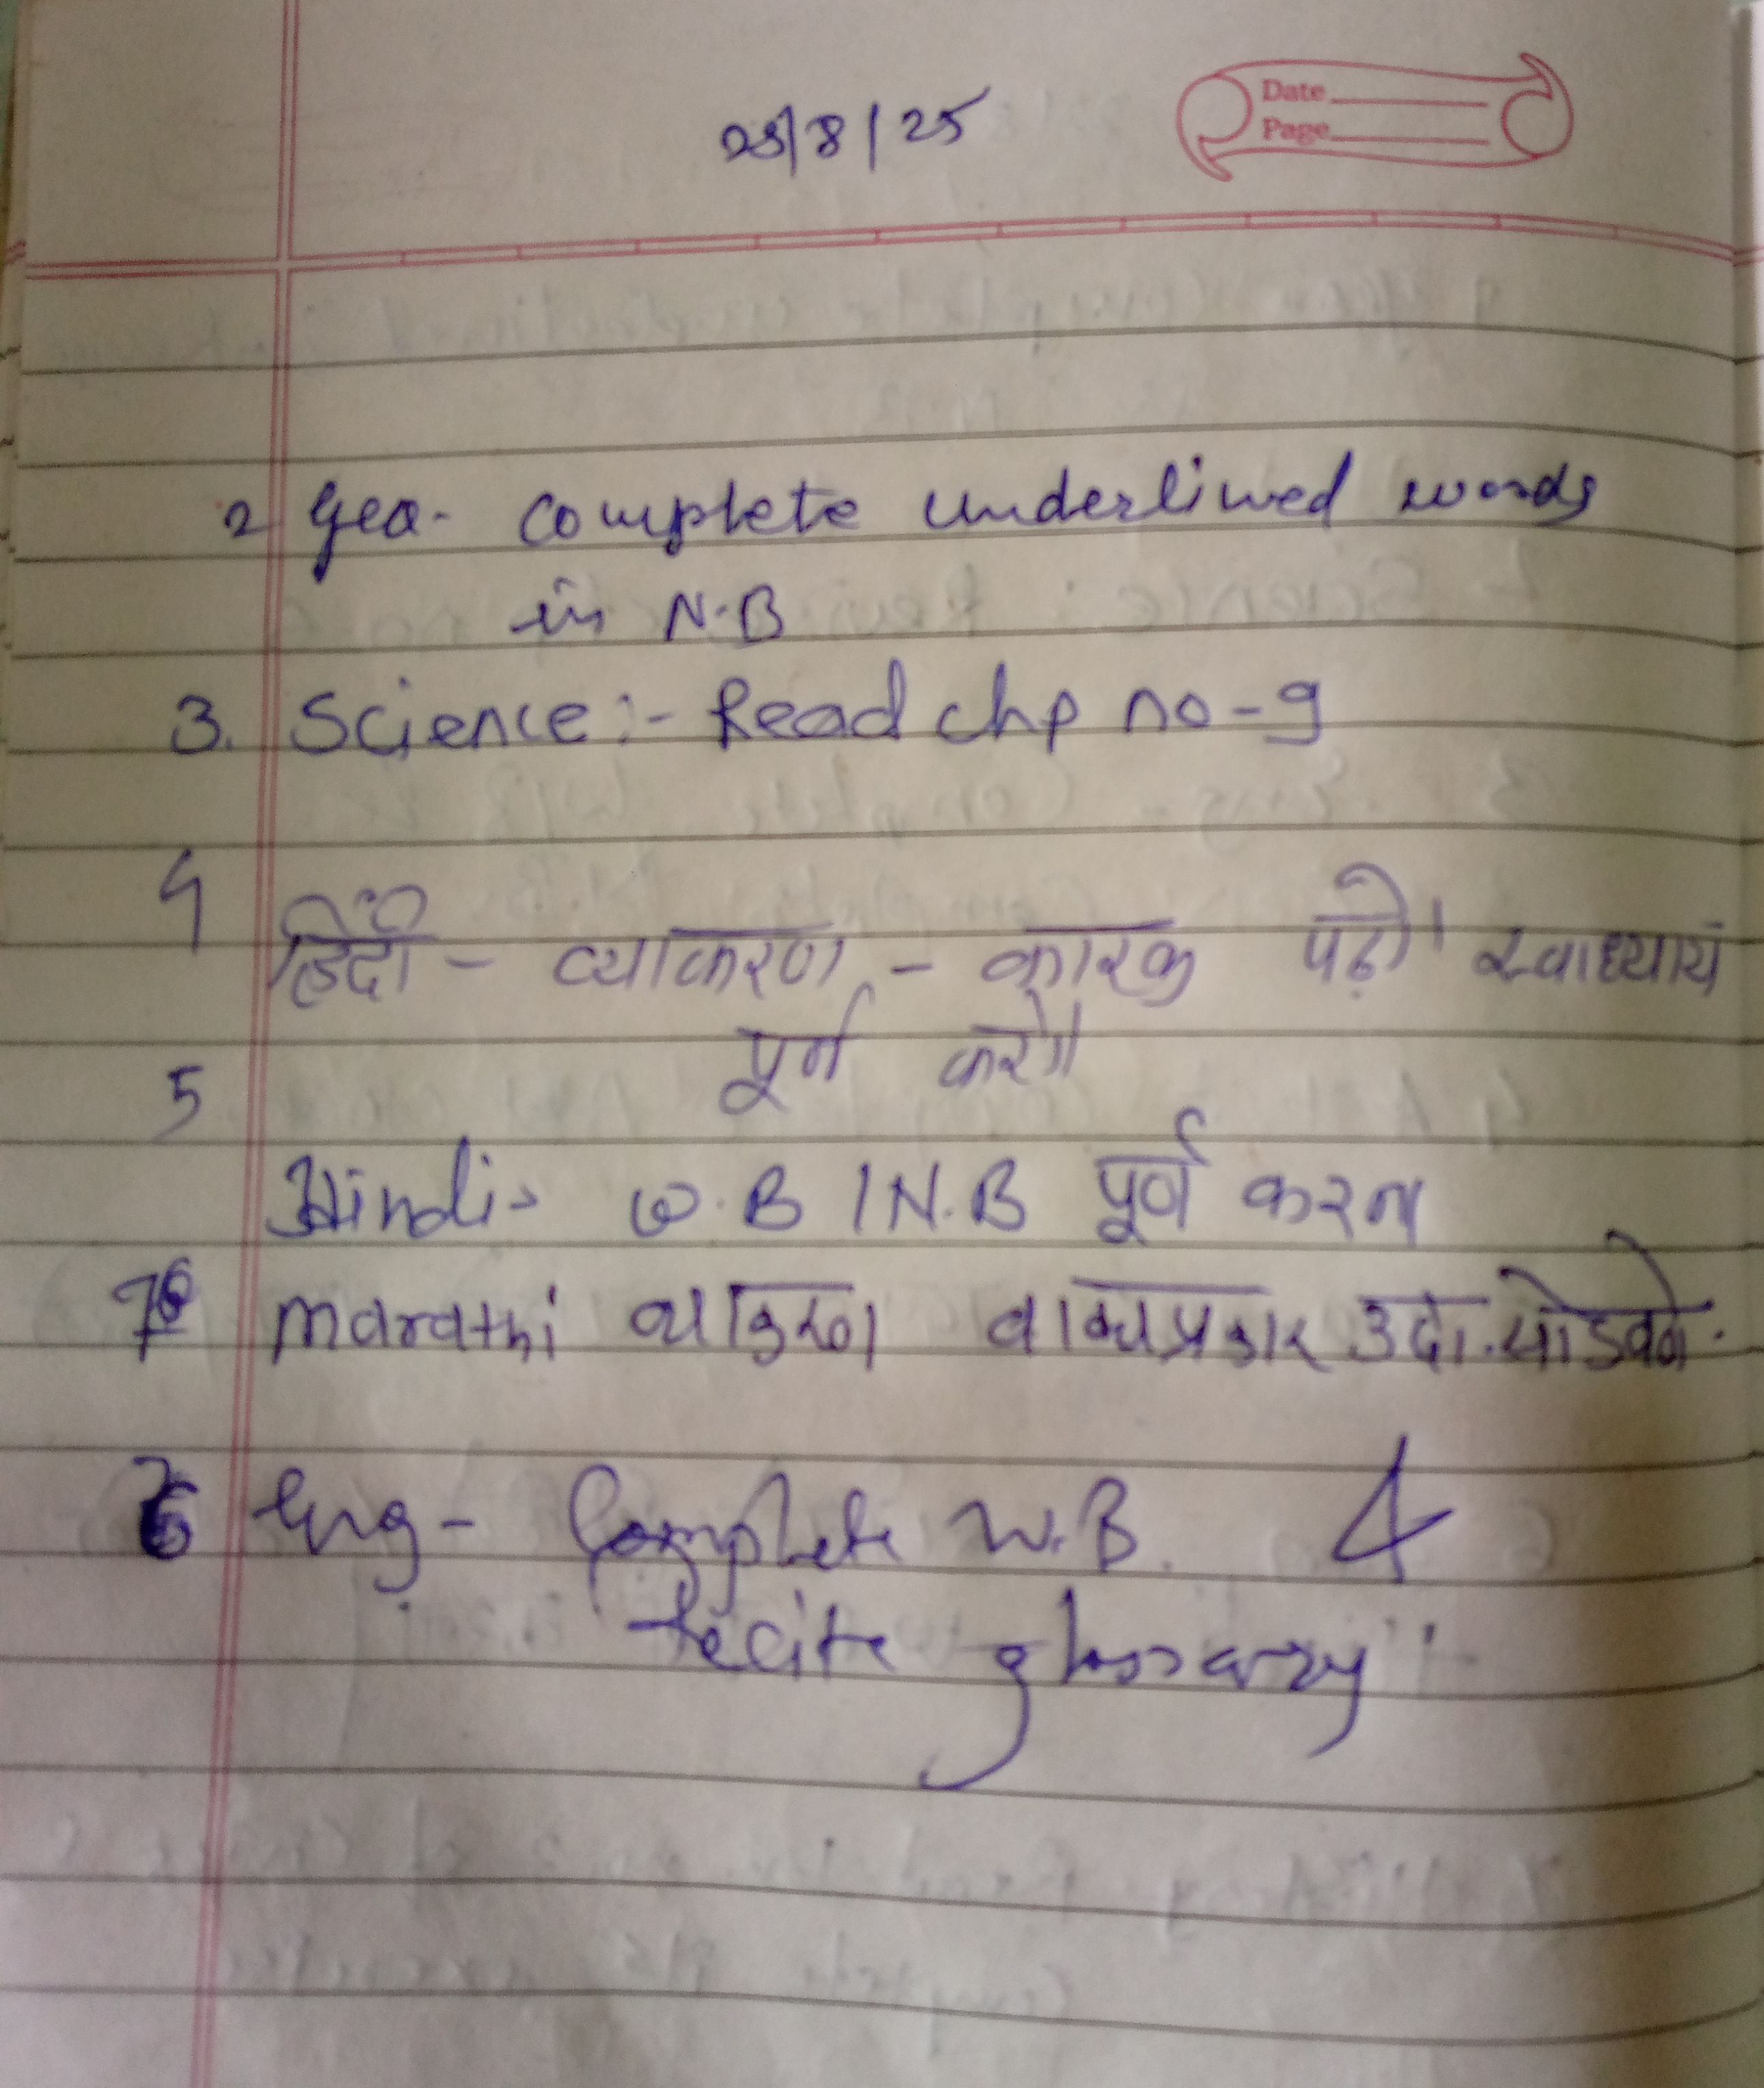 Date
Page
25/8/25
2 Geo- complete underlined words
in N.B
3. Science:- Read chp no-9
4 हिंदी - व्याकरण - कारक पढ़ो। स्वाध्याय
पूर्ण करो।
5
Hindi- W.B / N.B पूर्ण करना
Marathi वाक्यप्रकार उदा.
Eng- Complete W.B. &
recite glossary.